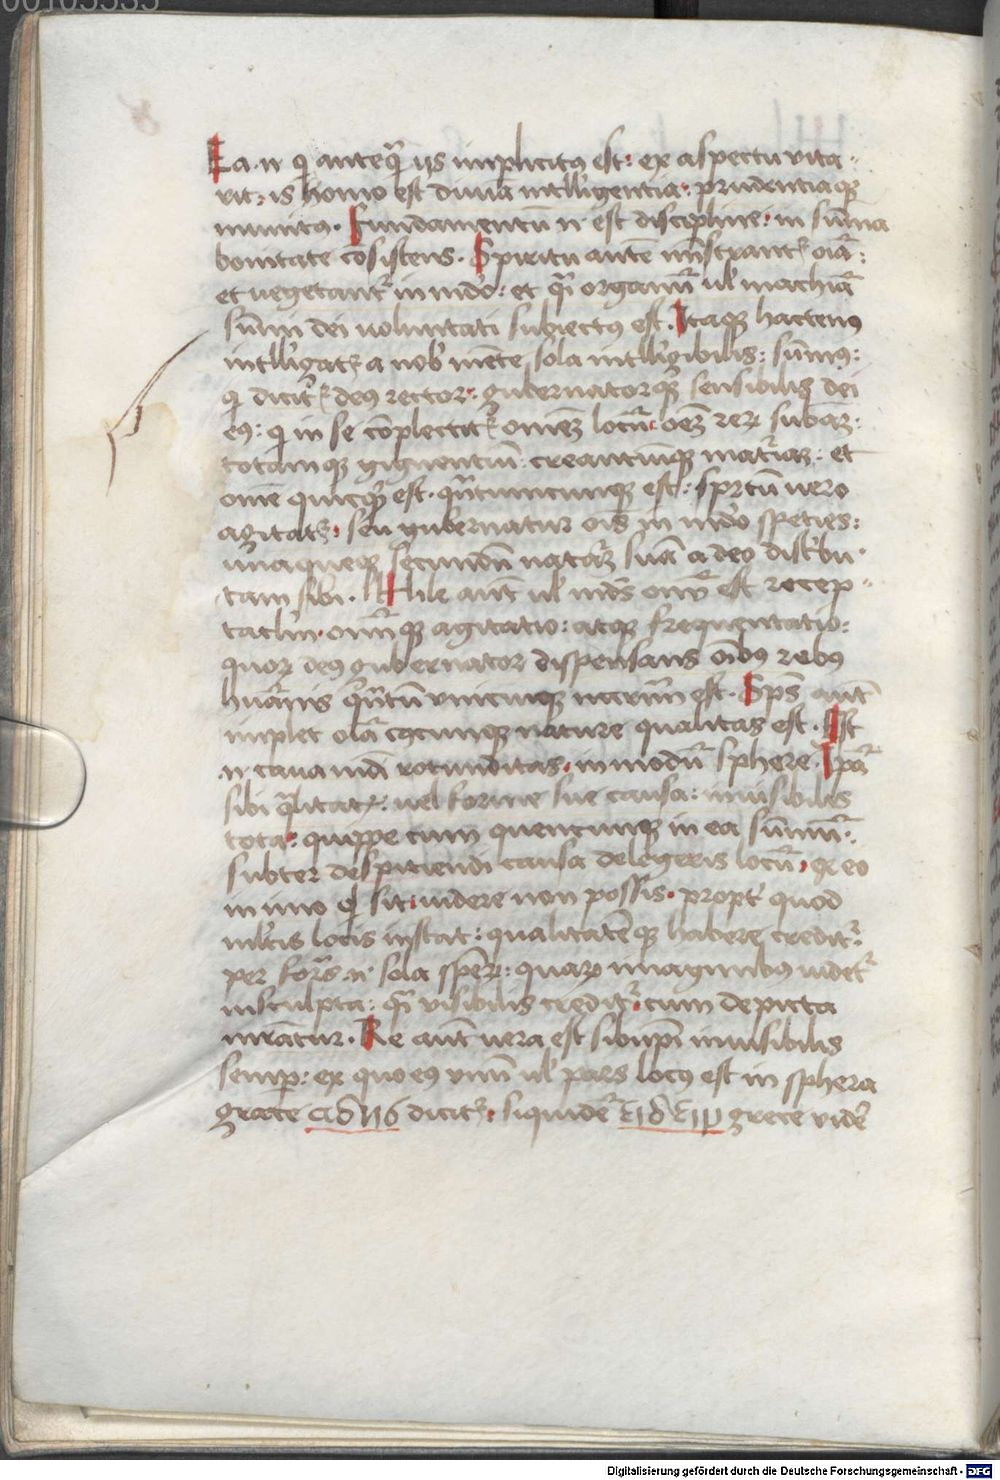 00105535
Ea .n. qi anteq̃ ijs implicitꝰ est: ex aspectu vita
vit: is homo est diuīa intll'igentia: prudentiaqꝫ
munitꝰ. Fundamentū .n. est discipline: in sūma
bonitate cōsistens. Spiritu autē mīstrantʳ oīa:
et uegetantʳ in mdo: et q̃i organū ul' machīa
sūmi dei uoluntati subiectꝰ est. Itaqꝫ hactenꝰ
intll'igatʳ a nob' mēte sola intll'igibilis: sūmꝰ:
qi dicitʳ deꝰ rector: gubernatorqꝫ sensibilis dei
eꝰ: qi in se cōplectitʳ omēꝫ locū: oēꝫ reꝝ subaꝫ:
totamqꝫ gignentiū: creantiūqꝫ mat'iaꝫ: et
omē quicq̃d est. q̃ntumcunqꝫ est: sp̄ritū uero
agitatʳ: seu gubernatur oīs in mdo speties:
unaqueqꝫ secundū naturā suā a deo distribu
tam sibi. Hile aūt ul' mds oīuꝫ est recep
tacl'm. omiūqꝫ agitatio: atqꝫ frequentatio:
quoꝝ deꝰ gubernator dispensans oībꝰ rebꝰ
huānis q̃ntū unicuiqꝫ neccm̄ est. Sp̄s aūt
implet oīa cꝰcunqꝫ nature qualitas est. Est
.n. caua mdi rotunditas. in modū sphere. Ip̄a
sibi q̃litatꝭ. uel forme sue causa: inuisibilis
tota: quippe cum quencunqꝫ in ea sūmū
subter despitiendi causa delegeris locū: ex eo
in imo qd sit: uidere non possis. propt' quod
mltis locis instat: qualitatēqꝫ habere creditʳ.
per forās .n. sola sp̄eꝝ: quaꝝ imaginibꝰ uidetʳ
insculpta: q̃i uisibilis creditʳ: cum depicta
mrātur. Re aūt uera est sibiip̄i inuisibilis
semp̱: ex quo eꝰ imū ul' pars locꝰ est in sphera
grece αδης dicitʳ: siquidē ειδειν grece vidē
Digitalisierung gefördert durch die Deutsche Forschungsgemeinschaft - DFG